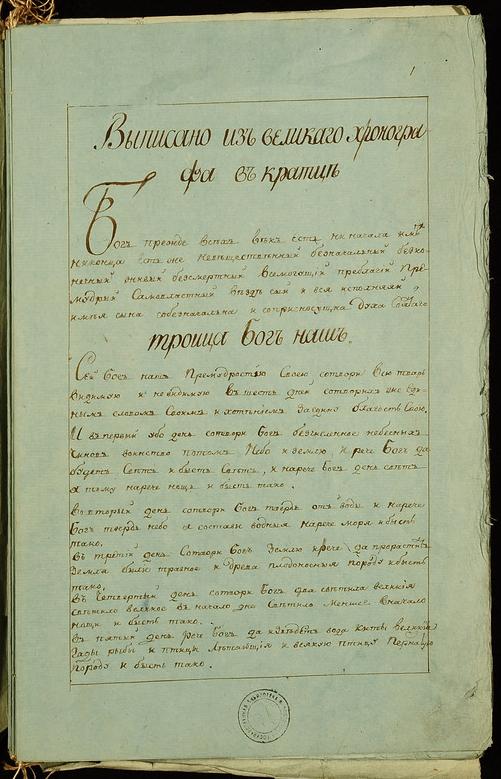 1
Выписано изъ великаго хроногра
фа въ кратцѣ
Богъ прежде всѣхъ вѣкъ есть ни начала имѣ
ни конца есть же невещественный безначальный безко
нечный живый безсмертный Всемогащій преблагій Пре
мудрый Самовластный вездѣ сый и вся исполняяй
имѣя сына собезначальна и соприсносущна Духа
троица Богъ нашъ.
Сей Богъ нашъ Премудростию Своею сотвори Всю тварь
видимую и невидимую въ шесть дней сотворилъ еди
нымъ словомъ Своимъ и хотѣниемъ благость Свою,
И въ первый убо день сотвори Богъ безчисленное небесныхъ
чиновъ воинство потомъ Небо и землю, и рече Богъ да
будетъ Светъ и бысть Светъ, и нарече богъ день светъ
а тму нарече нощь и бысть тако.
Во вторый день сотвори Богъ твердь отъ воды и нарече
Богъ твердь небо а состави водныя нарече моря и бысть
тако,
Въ третий день Сотвори Богъ Землю и рече да прорастит
Земля былие травное и древа плодоносная породу и бысть
тако,
Въ Четвертый день сотвори Богъ два светила великия
светило великое въ начало дне Светило меншее вначало
нощи и бысть тако.
Въ пятый день рече Богъ да изведетъ вода киты великия
Гады рыбы и птицы Летающия и всякую птицу Пернату
породу и бысть тако.